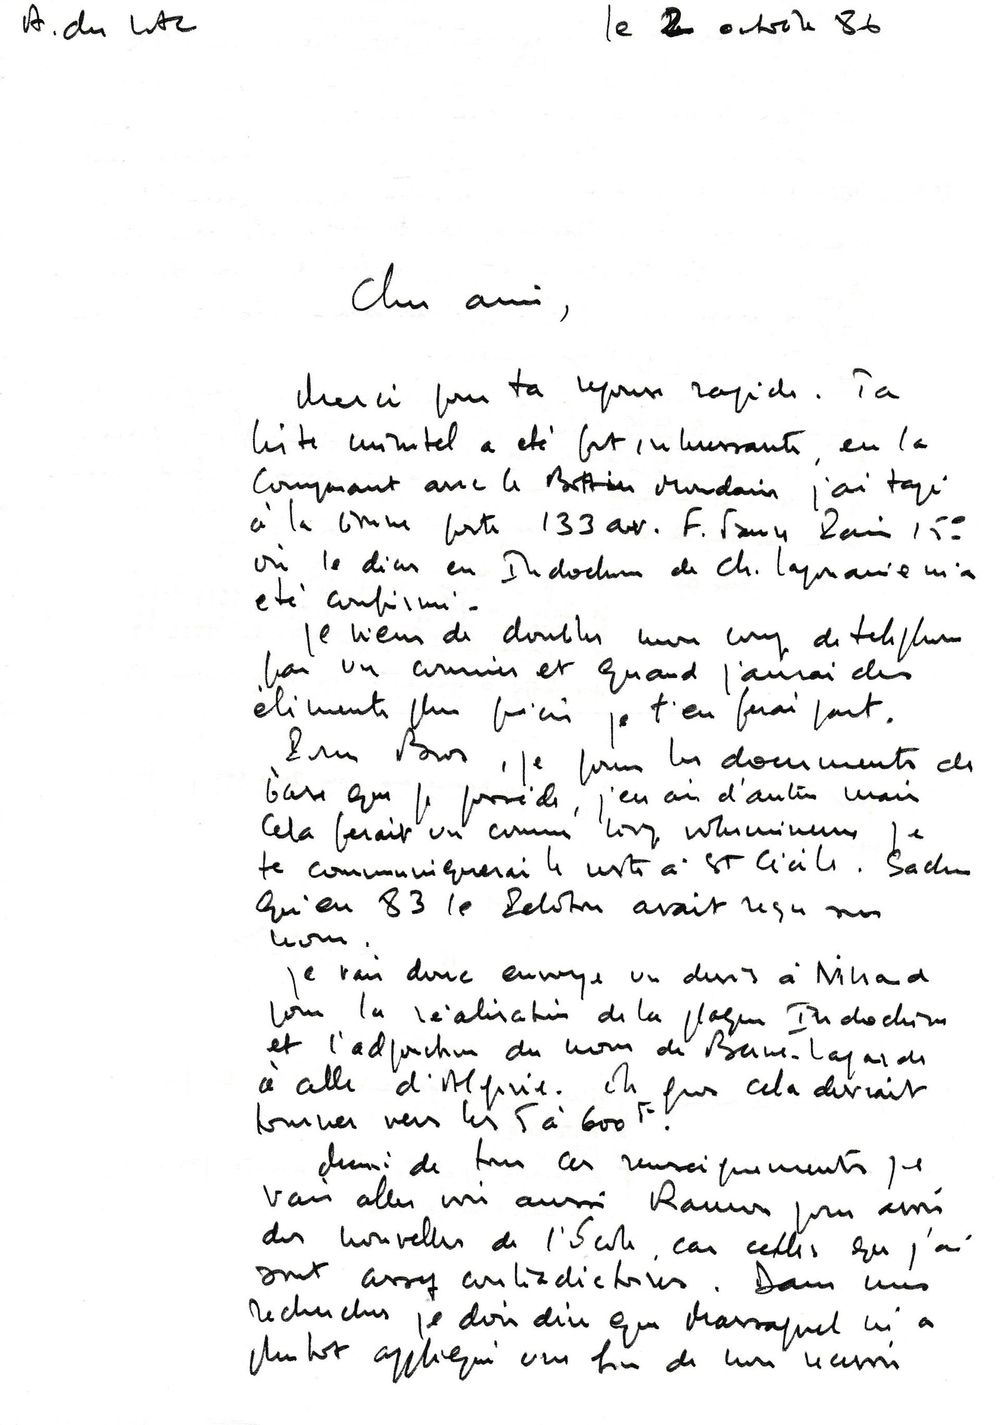 A. du Lac le 2 octobre 86
Cher ami,
Merci pour ta reponse rapide. Ta
liste minitel a eté fort interessante, en la
comparant avec le Bottin Mondain j'ai tapé
à la bonne porte 133 av. F. Faure Paris 15e
où le décès en Indochine de Ch. Laporarie m'a
eté confirmé.
Je viens de doubler mon coup de telephone
par un courrier et quand j'aurai des
éléments plus précis je t'en ferai part.
Pour Bros, je joins les documents de
base que je possède, j'en ai d'autres mais
cela ferait un courrier trop volumineux je
te communiquerai le reste à St Cécile. Sache
qu'en 83 le Peloton avait reçu son
nom.
Je vais donc envoyer un devis à Nihard
pour la réalisation de la plaque Indochine
et l'adjonction du nom de Barne-Lagarde
à celle d'Algérie. En gros cela devrait
tourner vers les 5 à 600 F.
Muni de tous ces renseignements je
vais aller voir aussi Ramos pour avoir
des nouvelles de l'École, car celles que j'ai
sont assez contradictoires. Dans mes
recherches je dois dire que Massaguel m'a
plutôt appliqué une fin de non recevoir